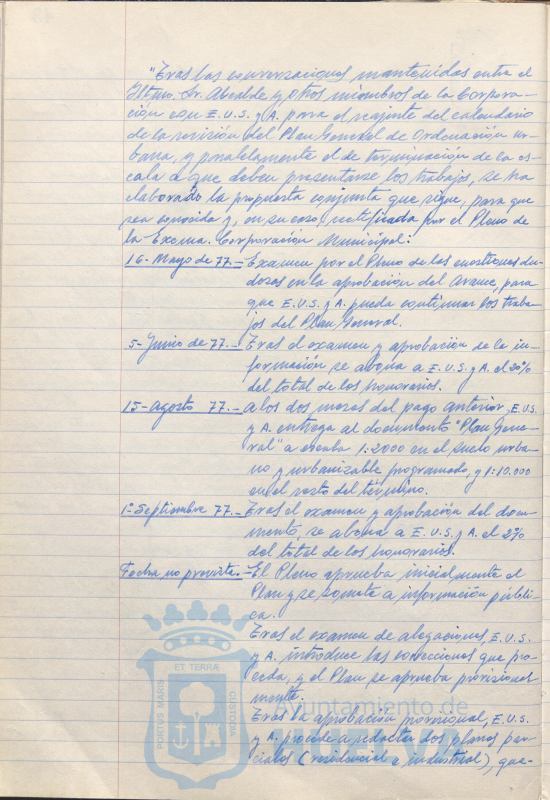 "Tras las conversaciones mantenidas entre el
Iltmo. Sr. Alcalde y otros miembros de la Corpora-
ción con E.U.S. y A. para el reajuste del calendario
de la revisión del Plan General de Ordenación ur-
bana, y paralelamente el de terminación de la es-
cala a que deben presentarse los trabajos, se ha
elaborado la propuesta conjunta que sigue, para que
sea conocida y, en su caso, ratificada por el Pleno de
la Excma. Corporación Municipal:
16-Mayo de 77.- Examen por el Pleno de las cuestiones du-
dosas en la aprobación del Avance, para
que E.U.S. y A. pueda continuar los traba-
jos del Plan General.
5-Junio de 77.- Tras el examen y aprobación de la in-
formación se abona a E.U.S. y A. el 20%
del total de los honorarios.
15-agosto 77.- a los dos meses del pago anterior, E.U.S.
y A. entrega al documento "Plan Gene-
ral" a escala 1:2000 en el suelo urba-
no y urbanizable programado, y 1:10.000
en el resto del término.
1º-Septiembre 77.- Tras el examen y aprobación del docu-
mento, se abona a E.U.S. y A. el
del total de los honorarios.
Fecha no prevista.- El Pleno aprueba inicialmente el
Plan y se somete a información públi-
ca.
Tras el examen de alegaciones, E.U.S.
y A. introduce las correcciones que pro-
ceda, y el Plan se aprueba provisional
mente.
Tras la aprobación provisional, E.U.S.
y A. procede a redactar dos planes par-
ciales (residencial e industrial), que-
PORTUS MARIS ET TERRÆ CUSTODIA
Ayuntamiento de
HUELVA